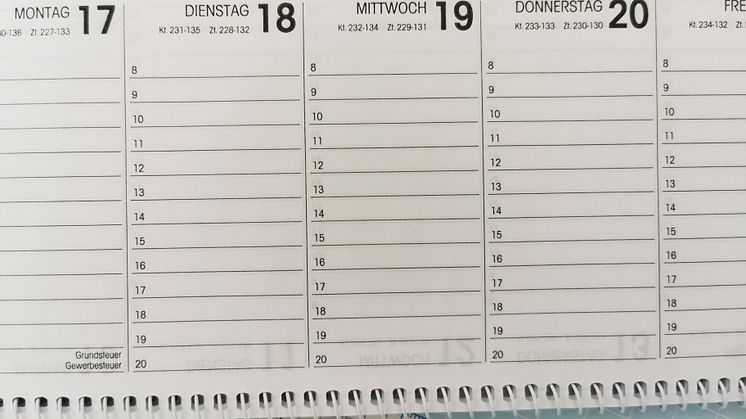 MONTAG 17
0-136 Zt. 227-133
Grundsteuer
Gewerbesteuer
DIENSTAG 18
Kt. 231-135 Zt. 228-132
8
9
10
11
12
13
14
15
16
17
18
19
20
MITTWOCH 19
Kt. 232-134 Zt. 229-131
8
9
10
11
12
13
14
15
16
17
18
19
20
DONNERSTAG 20
Kt. 233-133 Zt. 230-130
8
9
10
11
12
13
14
15
16
17
18
19
20
FRE
Kt. 234-132 Zt.
8
9
10
11
12
13
14
15
16
17
18
19
20